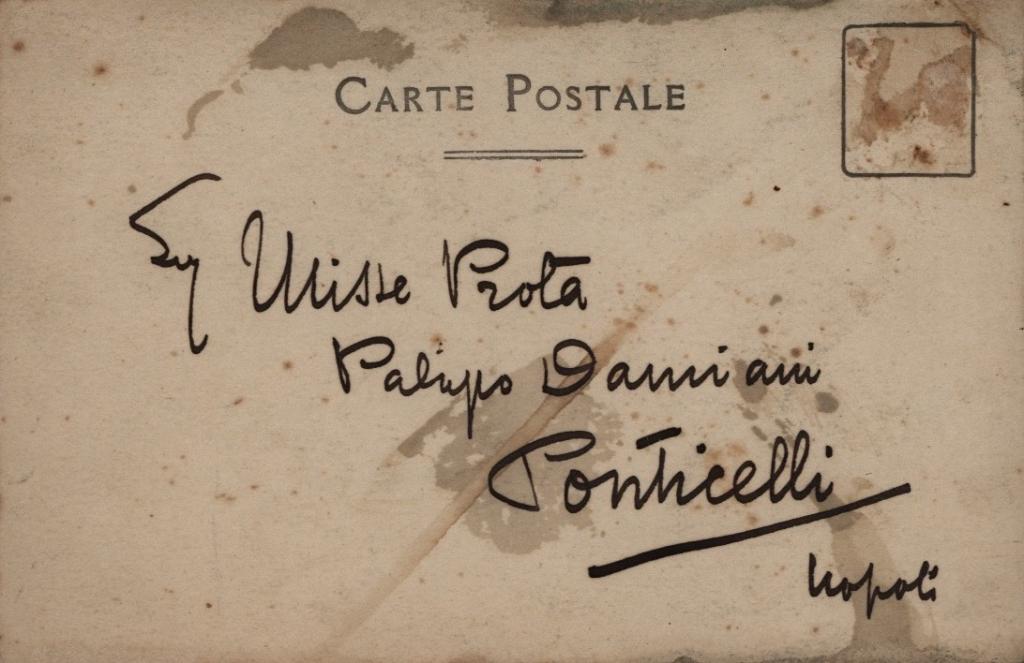 CARTE POSTALE
Sig Ulisse Prota
Palazzo Damiani
Ponticelli
Napoli